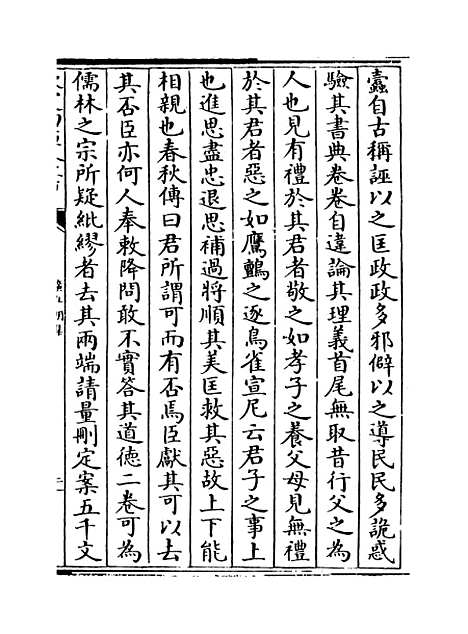 蠹自古稱誣以之匡政政多邪僻以之導民民多詭惑
驗其書典卷卷自違論其理義首尾無取昔行父之為
人也見有禮於其君者敬之如孝子之養父母見無禮
於其君者惡之如鷹鸇之逐鳥雀宣尼云君子之事上
也進思盡忠退思補過將順其美匡救其惡故上下能
相親也春秋傳曰君所謂可而有否焉臣獻其可以去
其否臣亦何人奉敕降問敢不實答其道德二卷可為
儒林之宗所疑紕繆者去其兩端請量刪定案五千文